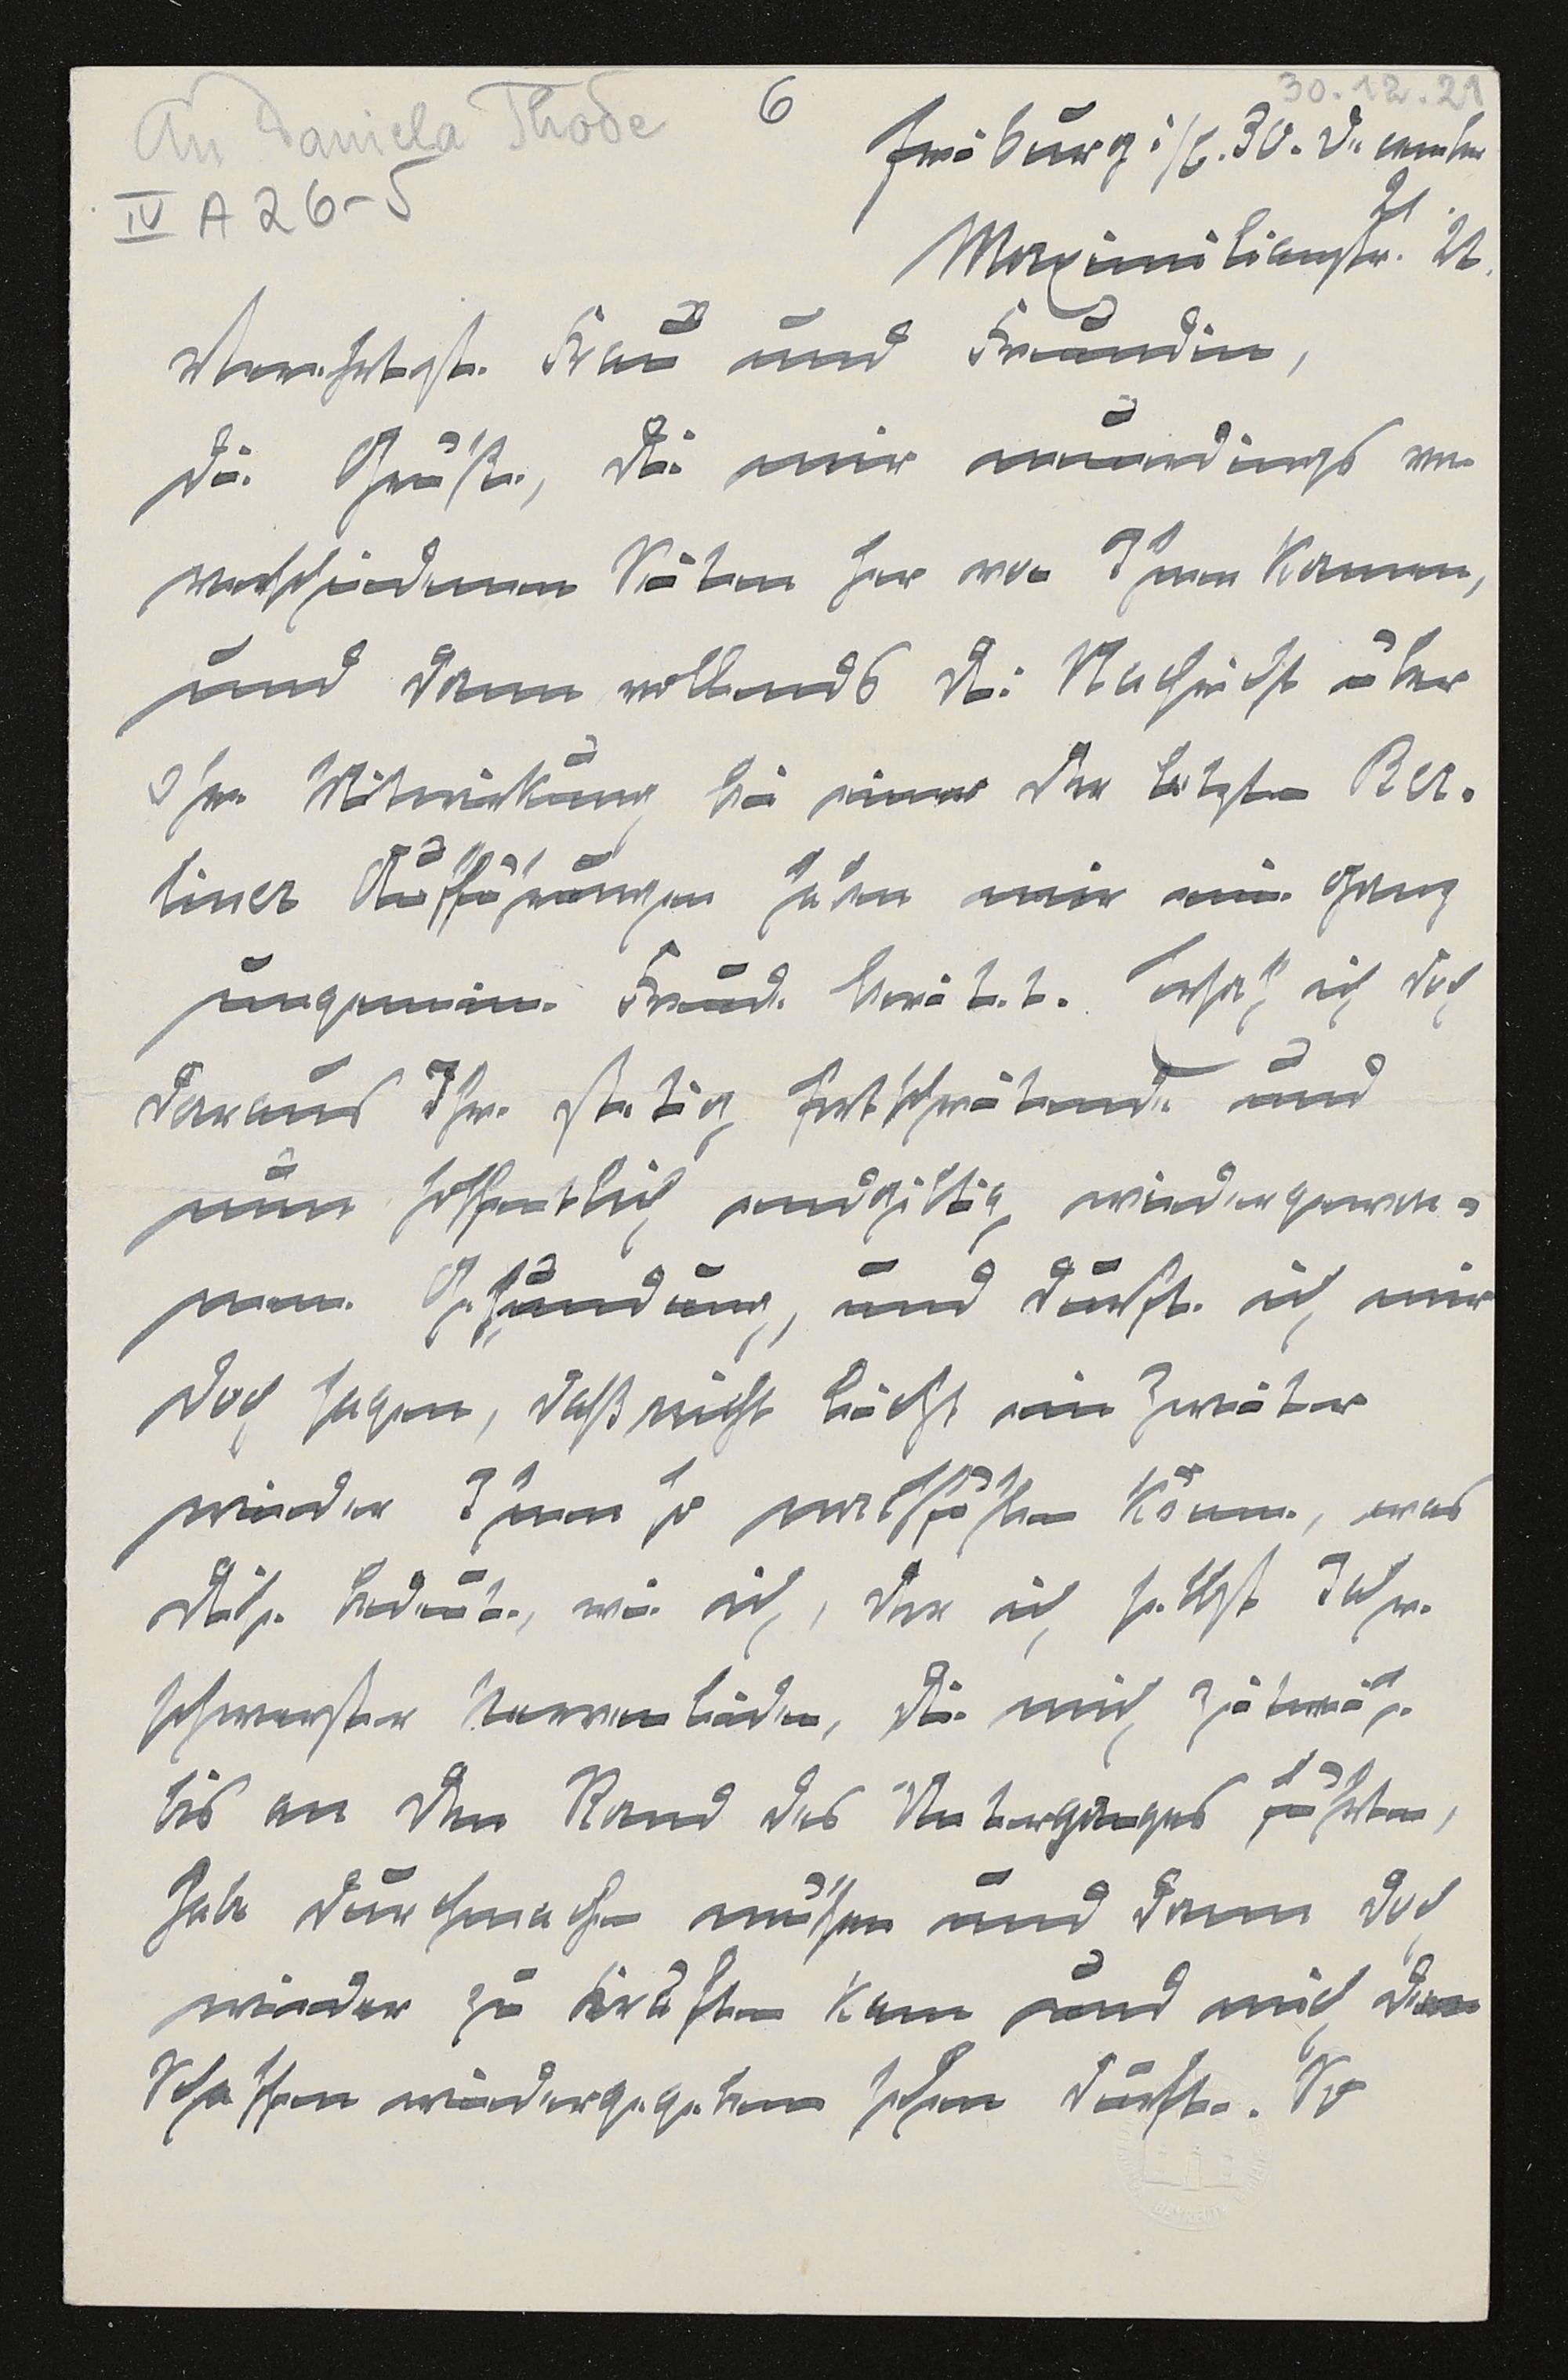 An Daniela Thode
6
30.12.21
IV A 26-5
Freiburg i/B. 30. Dezember
21.
Maximilianstr. 22.
Verehrteste Frau und Freundin,
die Grüße, die mir neuerdings von
verschiedenen Seiten her von Ihnen kamen,
und dann vollends die Nachricht über
Ihre Mitwirkung bei einer der letzten Ber-
liner Aufführungen haben mir eine ganz
ungemeine Freude bereitet. Ersah ich doch
daraus Ihre stetig fortschreitende und
nun hoffentlich endgiltig wiedergewon=
nene Gesundung, und durfte ich mir
doch sagen, daß nicht leicht ein Zweiter
wieder Ihnen so nachfühlen könne, was
dies bedeute, wie ich, der ich selbst Jahre
schwerster Nervenleiden, die mich zeitweise
bis an den Rand des Unterganges führten,
habe durchmachen müssen und dann doch
wieder zu Kräften kam und mich dem
Schaffen wiedergegeben sehen durfte. So